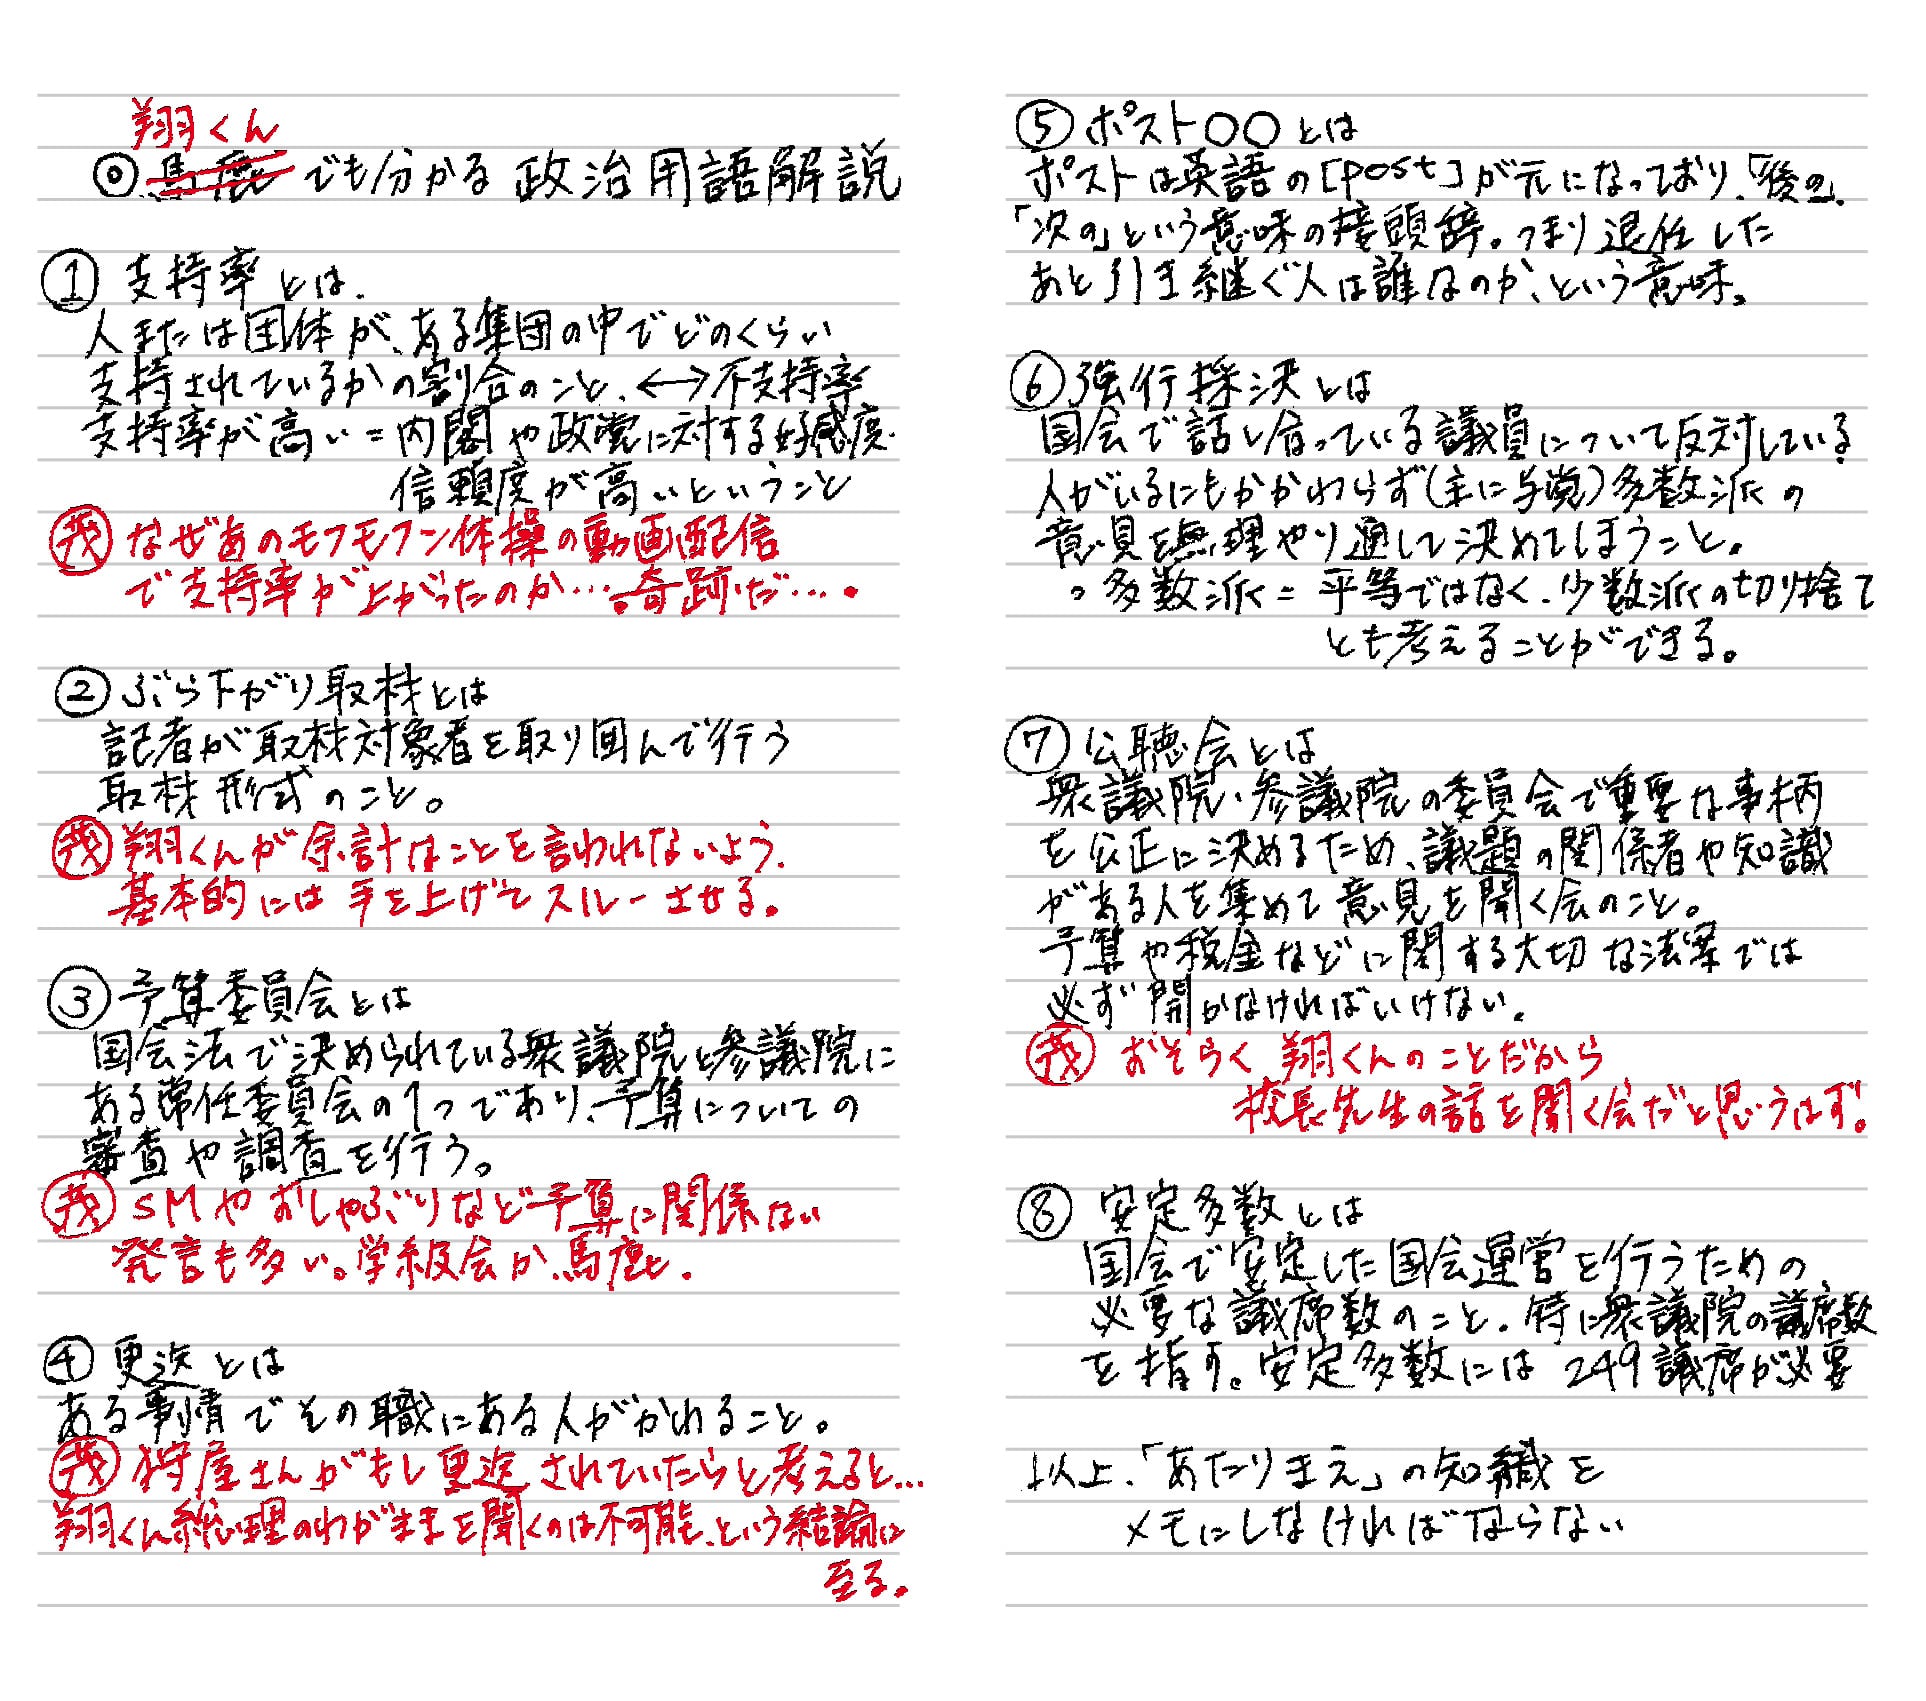 翔くん
◎馬鹿でも分かる政治用語解説
① 支持率とは、
人または団体が、ある集団の中でどのくらい
支持されているかの割合のこと、←→不支持率
支持率が高い=内閣や政党に対する好感度・
信頼度が高いということ
なぜあのモフモフン体操の動画配信
で支持率が上がったのか…。奇跡だ…。
② ぶら下がり取材とは
記者が取材対象者を取り囲んで行う
取材形式のこと。
翔くんが余計なことを言われないよう、
基本的には手を上げてスルーさせる。
③ 予算委員会とは
国会法で決められている衆議院と参議院に
ある常任委員会の1つであり、予算についての
審査や調査を行う。
SMやおしゃぶりなど予算に関係ない
発言も多い。学級会か、馬鹿と。
④ 更迭とは
ある事情でその職にある人がかわること。
狩屋さんがもし更迭されていたらと考えると…
翔くん総理のわがままを聞くのは不可能、という結論に
至る。
⑤ ポスト〇〇とは
ポストは英語の[post]が元になっており、「後の」、
「次の」という意味の接頭辞。つまり退任した
あと引き継ぐ人は誰なのか、という意味。
⑥ 強行採決とは
国会で話し合っている議員について反対している
人がいるにもかかわらず(主に与党)多数派の
意見を無理やり通して決めてしまうこと。
。多数派=平等ではなく、少数派の切り捨て
とも考えることができる。
⑦ 公聴会とは
衆議院・参議院の委員会で重要な事柄
を公正に決めるため、議題の関係者や知識
がある人を集めて意見を聞く会のこと。
予算や税金などに関する大切な法案では
必ず開かなければいけない。
おそらく翔くんのことだから
校長先生の話を聞く会だと思うはず。
⑧ 安定多数とは
国会で安定した国会運営を行うための
必要な議席数のこと。特に衆議院の議席数
を指す。安定多数には249議席が必要
以上、「あたりまえ」の知識を
メモにしなければならない